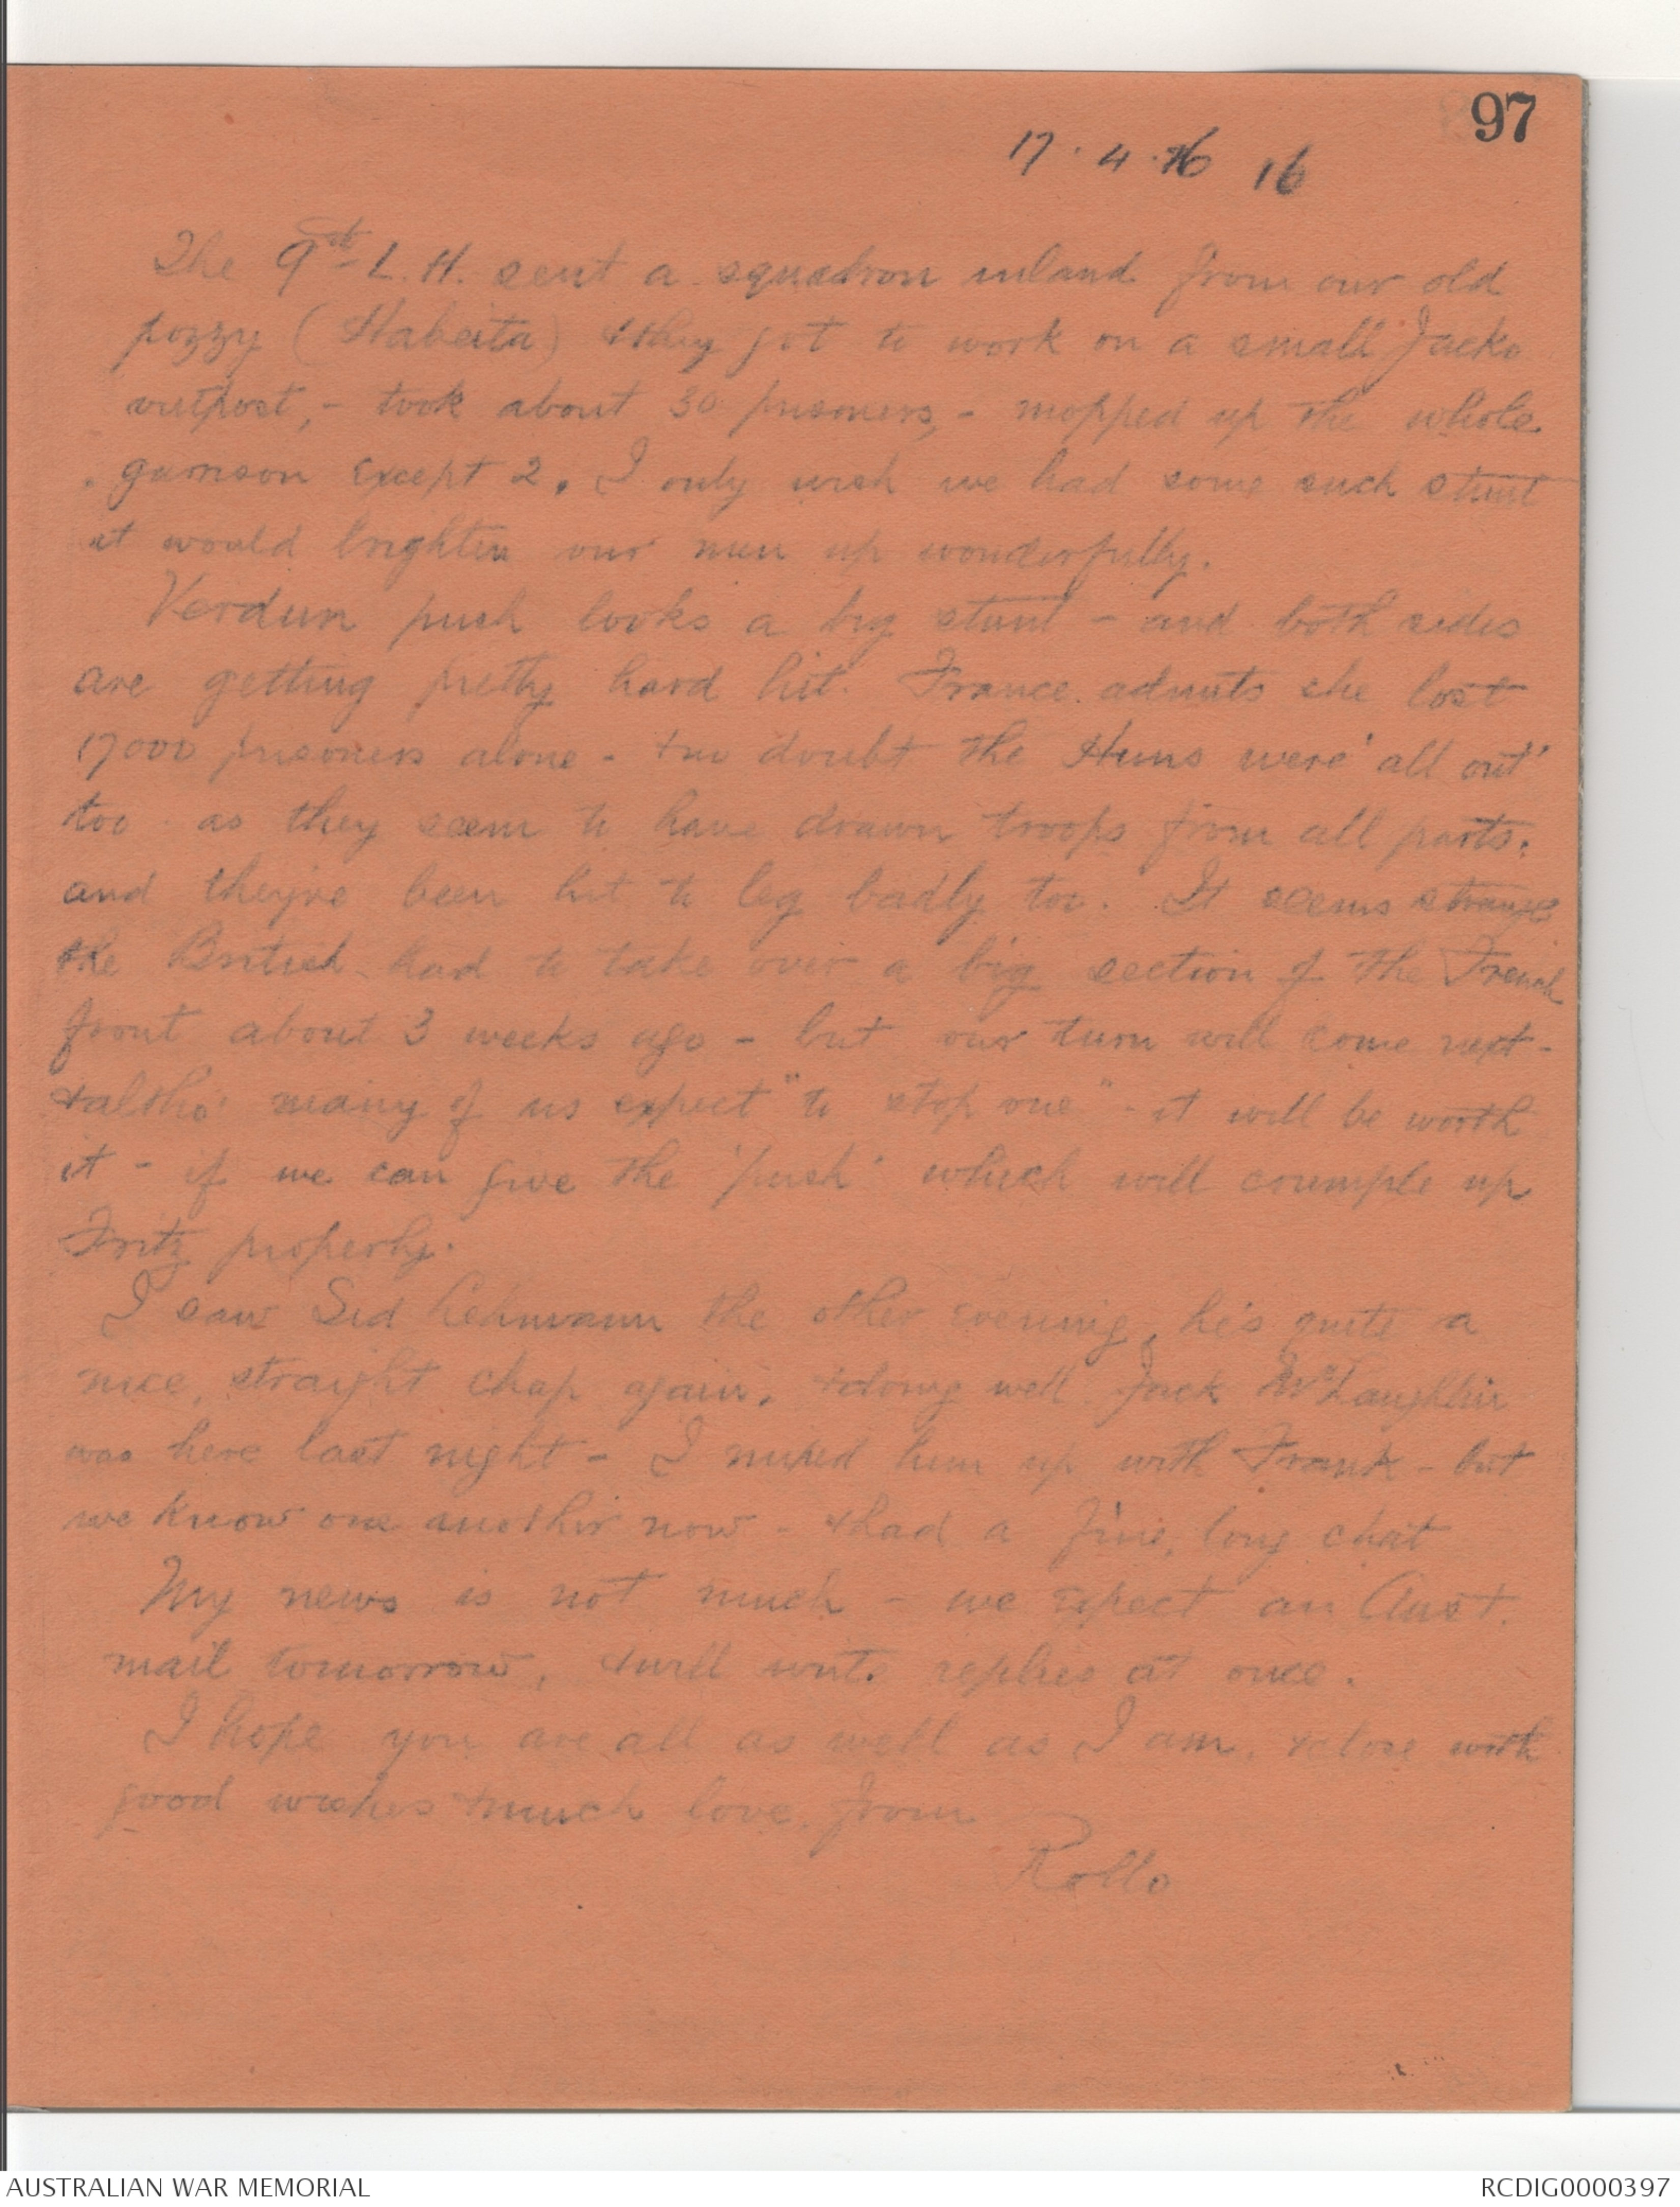 97
17.4.16 16
The 9th L.H. sent a squadron inland from our old
pozzy (Habeita) & they got to work on a small Jacko
outpost, - took about 30 prisoners, - mopped up the whole
garrison except 2. I only wish we had some such stunt
it would brighten our men up wonderfully.
Verdun push looks a big stunt - and both sides
are getting pretty hard hit. France admits she lost
17000 prisoners alone - & no doubt the Huns were 'all out'
too as they seem to have drawn troops from all parts.
and they've been hit to leg badly too. It seems strange
the British had to take over a big section of the French
front about 3 weeks ago - but our turn will come next -
& altho' many of us expect "to stop one" - it will be worth
it - if we can give the 'push' which will crumple up
Fritz properly.
I saw Sid Lehmann the other evening, he's quite a
nice, straight chap again, & doing well. Jack McLaughlin
was here last night - I mixed him up with Frank - but
we know one another now - & had a fine, long chat
My news is not much - we expect an Aust.
mail tomorrow, & will write replies at once.
I hope you are all as well as I am, & close with
good wishes & much love from
Rollo
AUSTRALIAN WAR MEMORIAL
RCDIG0000397